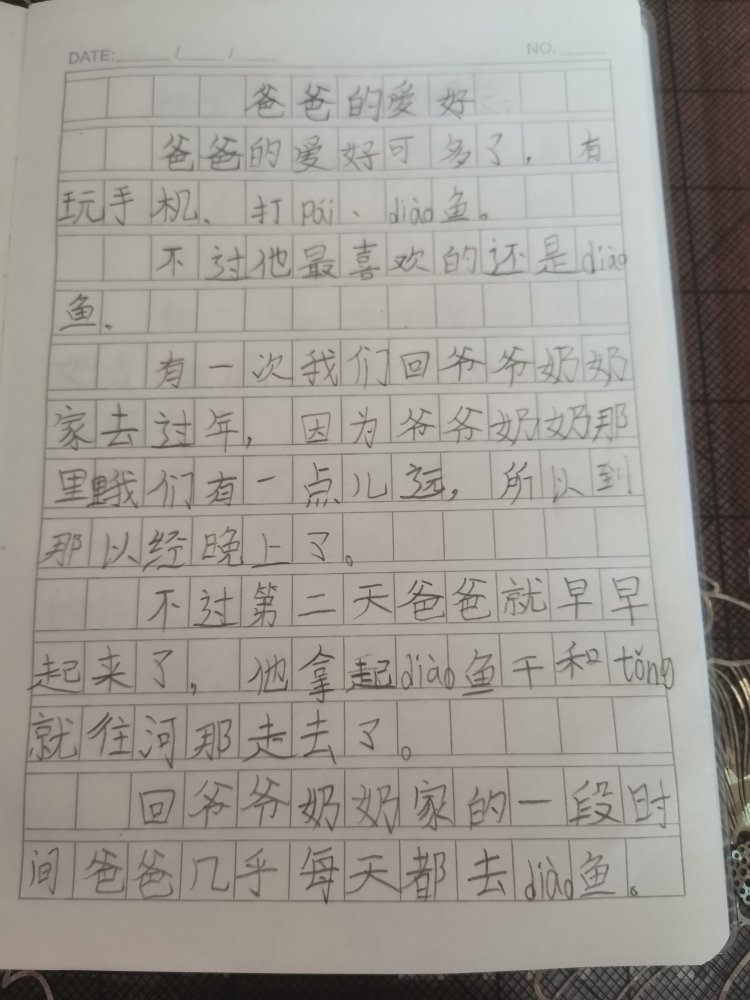 DATE: / /
NO.
爸爸的爱好
爸爸的爱好可多了，有
玩手机、打pái、diào鱼。
不过他最喜欢的还是diào
鱼.
有一次我们回爷爷奶奶
家去过年，因为爷爷奶奶那
里离我们有一点儿远，所以到
那以经晚上了。
不过第二天爸爸就早早
起来了，他拿起diào鱼干和tǒng
就往河那走去了。
回爷爷奶奶家的一段时
间爸爸几乎每天都去diào鱼。